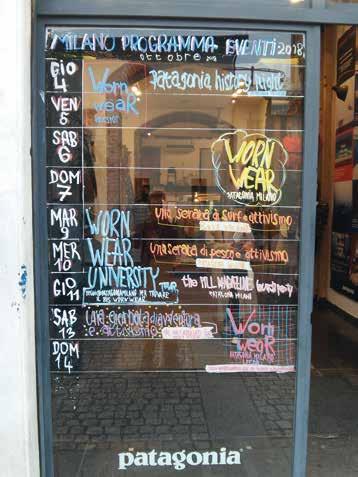 MILANO PROGRAMMA EVENTI 2018
ottobre
GIO 4
Worn wear
patagonia history night
VEN 5
SAB 6
WORN WEAR
PATAGONIA MILANO
DOM 7
MAR 9
WORN WEAR UNIVERSITY TOUR
una serata di surf e attivismo
MER 10
una serata di pesca e attivismo
GIO 11
the
PATAGONIA MILANO
IL BUS WORN WEAR
SAB 13
una giornata di avventura
e attivismo
Worn wear
PATAGONIA MILANO
DOM 14
patagonia